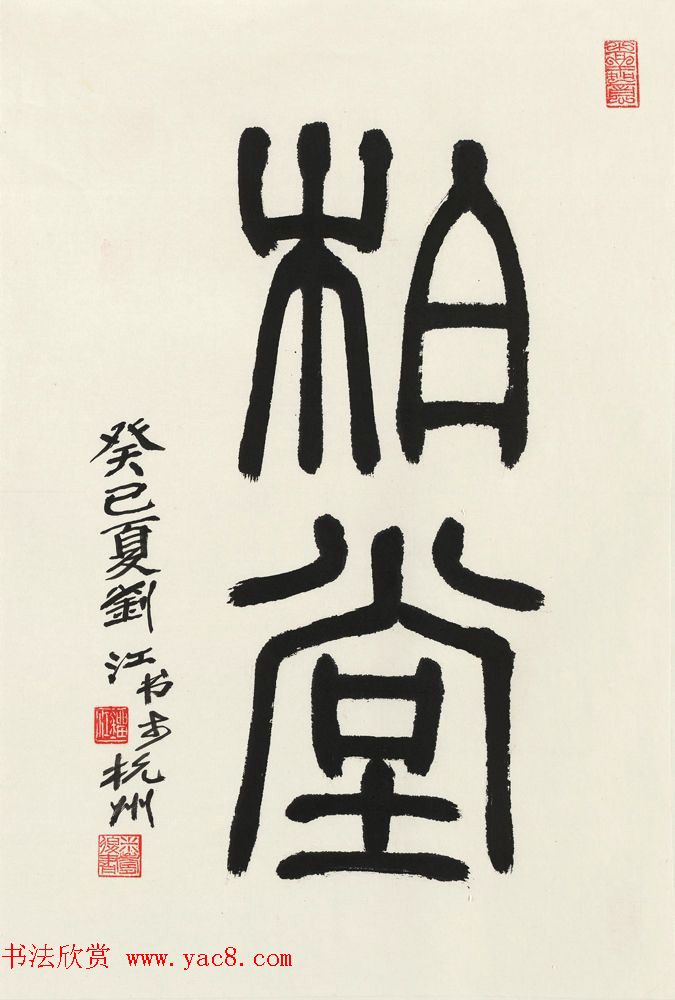 柏堂
癸巳夏劉江书于杭州
书法欣赏 www.yac8.com